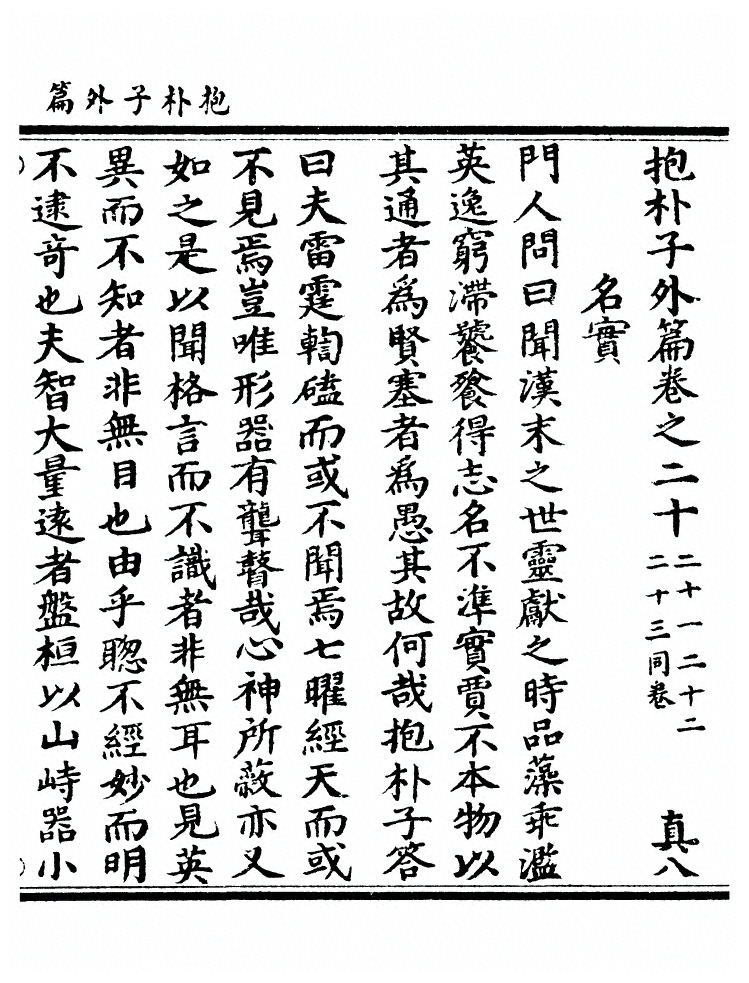 抱朴子外篇
抱朴子外篇卷之二十 二十一二十二
二十三同卷 真八
名實
門人問曰聞漢末之世靈獻之時品藻乖濫
英逸窮滯饕餮得志名不準實賈不本物以
其通者爲賢塞者爲愚其故何哉抱朴子答
曰夫雷霆輷磕而或不聞焉七曜經天而或
不見焉豈唯形器有聾瞽哉心神所蔽亦又
如之是以聞格言而不識者非無耳也見英
異而不知者非無目也由乎聦不經妙而明
不逮奇也夫智大量遠者盤桓以山峙器小